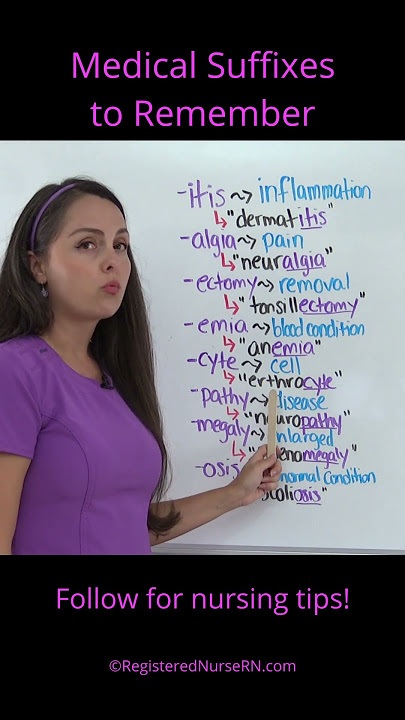 Medical Suffixes
to Remember
-itis ~> inflammation
"dermatitis"
-algia ~> pain
"neuralgia"
-ectomy ~> removal
"tonsillectomy"
-emia ~> blood condition
"anemia"
-cyte ~> cell
"erthrocyte"
-pathy ~> disease
"neuropathy"
-megaly ~> enlarged
megaly"
-osis normal condition
oliosis"
Follow for nursing tips!
©RegisteredNurseRN.com